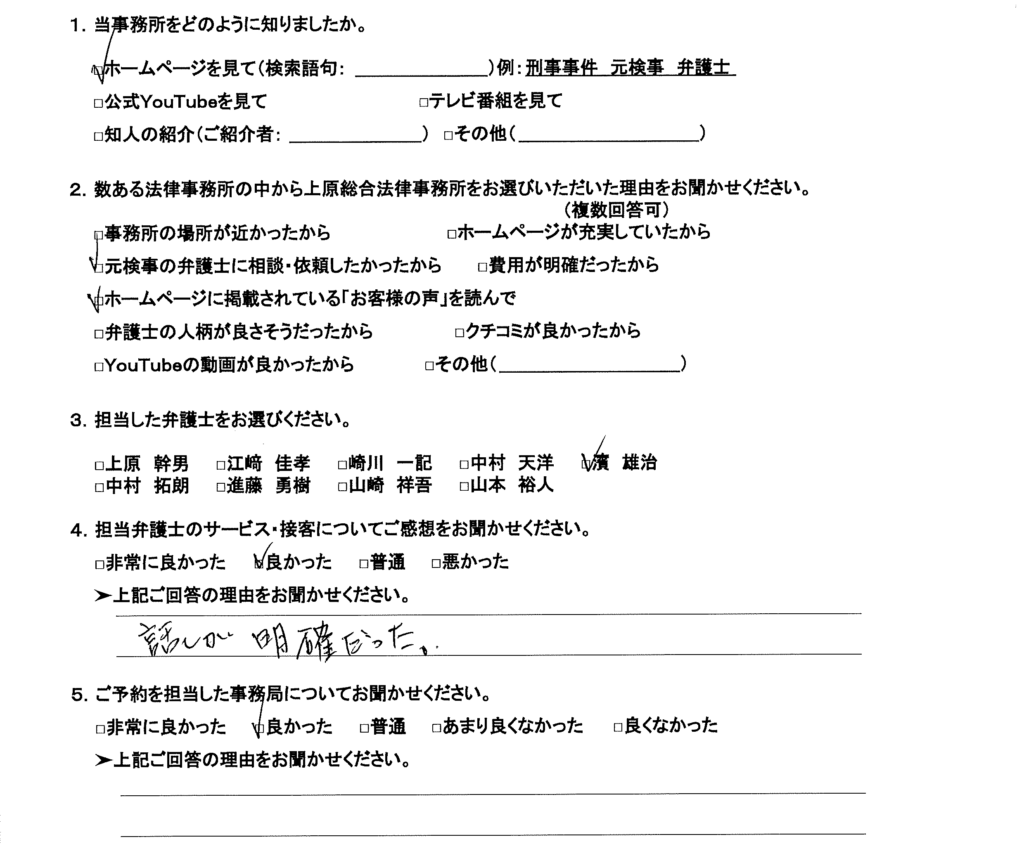 1. 当事務所をどのように知りましたか。
☑ホームページを見て(検索語句: ____________)例:刑事事件 元検事 弁護士
□公式YouTubeを見て □テレビ番組を見て
□知人の紹介(ご紹介者: ____________) □その他(________________)
2. 数ある法律事務所の中から上原総合法律事務所をお選びいただいた理由をお聞かせください。
(複数回答可)
□事務所の場所が近かったから □ホームページが充実していたから
☑元検事の弁護士に相談・依頼したかったから □費用が明確だったから
☑ホームページに掲載されている「お客様の声」を読んで
□弁護士の人柄が良さそうだったから □クチコミが良かったから
□YouTubeの動画が良かったから □その他(________________)
3. 担当した弁護士をお選びください。
□上原 幹男 □江﨑 佳孝 □崎川 一記 □中村 天洋 ☑濱 雄治
□中村 拓朗 □進藤 勇樹 □山崎 祥吾 □山本 裕人
4. 担当弁護士のサービス・接客についてご感想をお聞かせください。
□非常に良かった ☑良かった □普通 □悪かった
➢上記ご回答の理由をお聞かせください。
話しが明確だった。
5. ご予約を担当した事務局についてお聞かせください。
□非常に良かった ☑良かった □普通 □あまり良くなかった □良くなかった
➢上記ご回答の理由をお聞かせください。